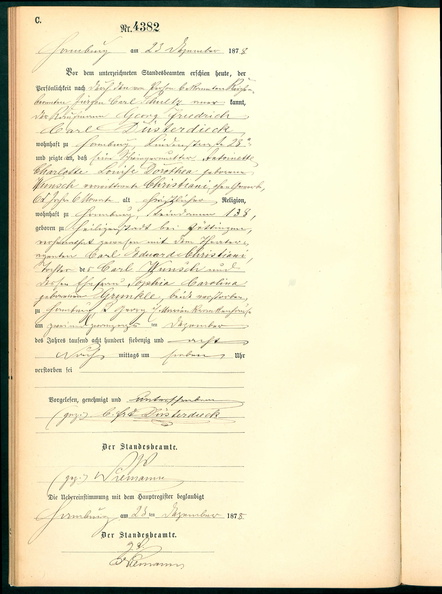 C.
Nr. 4382
Hamburg am 23 Dezember 1878
Vor dem unterzeichneten Standesbeamten erschien heute, der
Persönlichkeit nach durch den
Carl Schultz kannt,
der Kaufmann Georg Friedrich
Carl Düsterdieck
wohnhaft zu Hamburg,
und zeigte an, daß seine Schwiegermutter Antoinette
Charlotte Louise Dorothea geborene
Wunsch verwittwete Christiani,
64 Jahre 6 Monate alt Religion,
wohnhaft zu Hamburg, Steindamm 138,
geboren zu Heiligenstadt bei Göttingen,
verheirathet gewesen mit dem Theater-
agenten Carl Eduard Christiani,
Tochter des Carl Wunsch und
dessen Ehefrau Sophia Carolina
geborenen Grunkle, beide verstorben,
zu Hamburg
am zwei und zwanzigsten Dezember
des Jahres tausend acht hundert siebenzig und acht
Nach mittags um sieben Uhr
verstorben sei
Vorgelesen, genehmigt und unterschrieben
(gez.) Düsterdieck
Der Standesbeamte.
(gez.) Niemann
Die Uebereinstimmung mit dem Hauptregister beglaubigt
Hamburg am 23 ten Dezember 1878
Der Standesbeamte.
Niemann